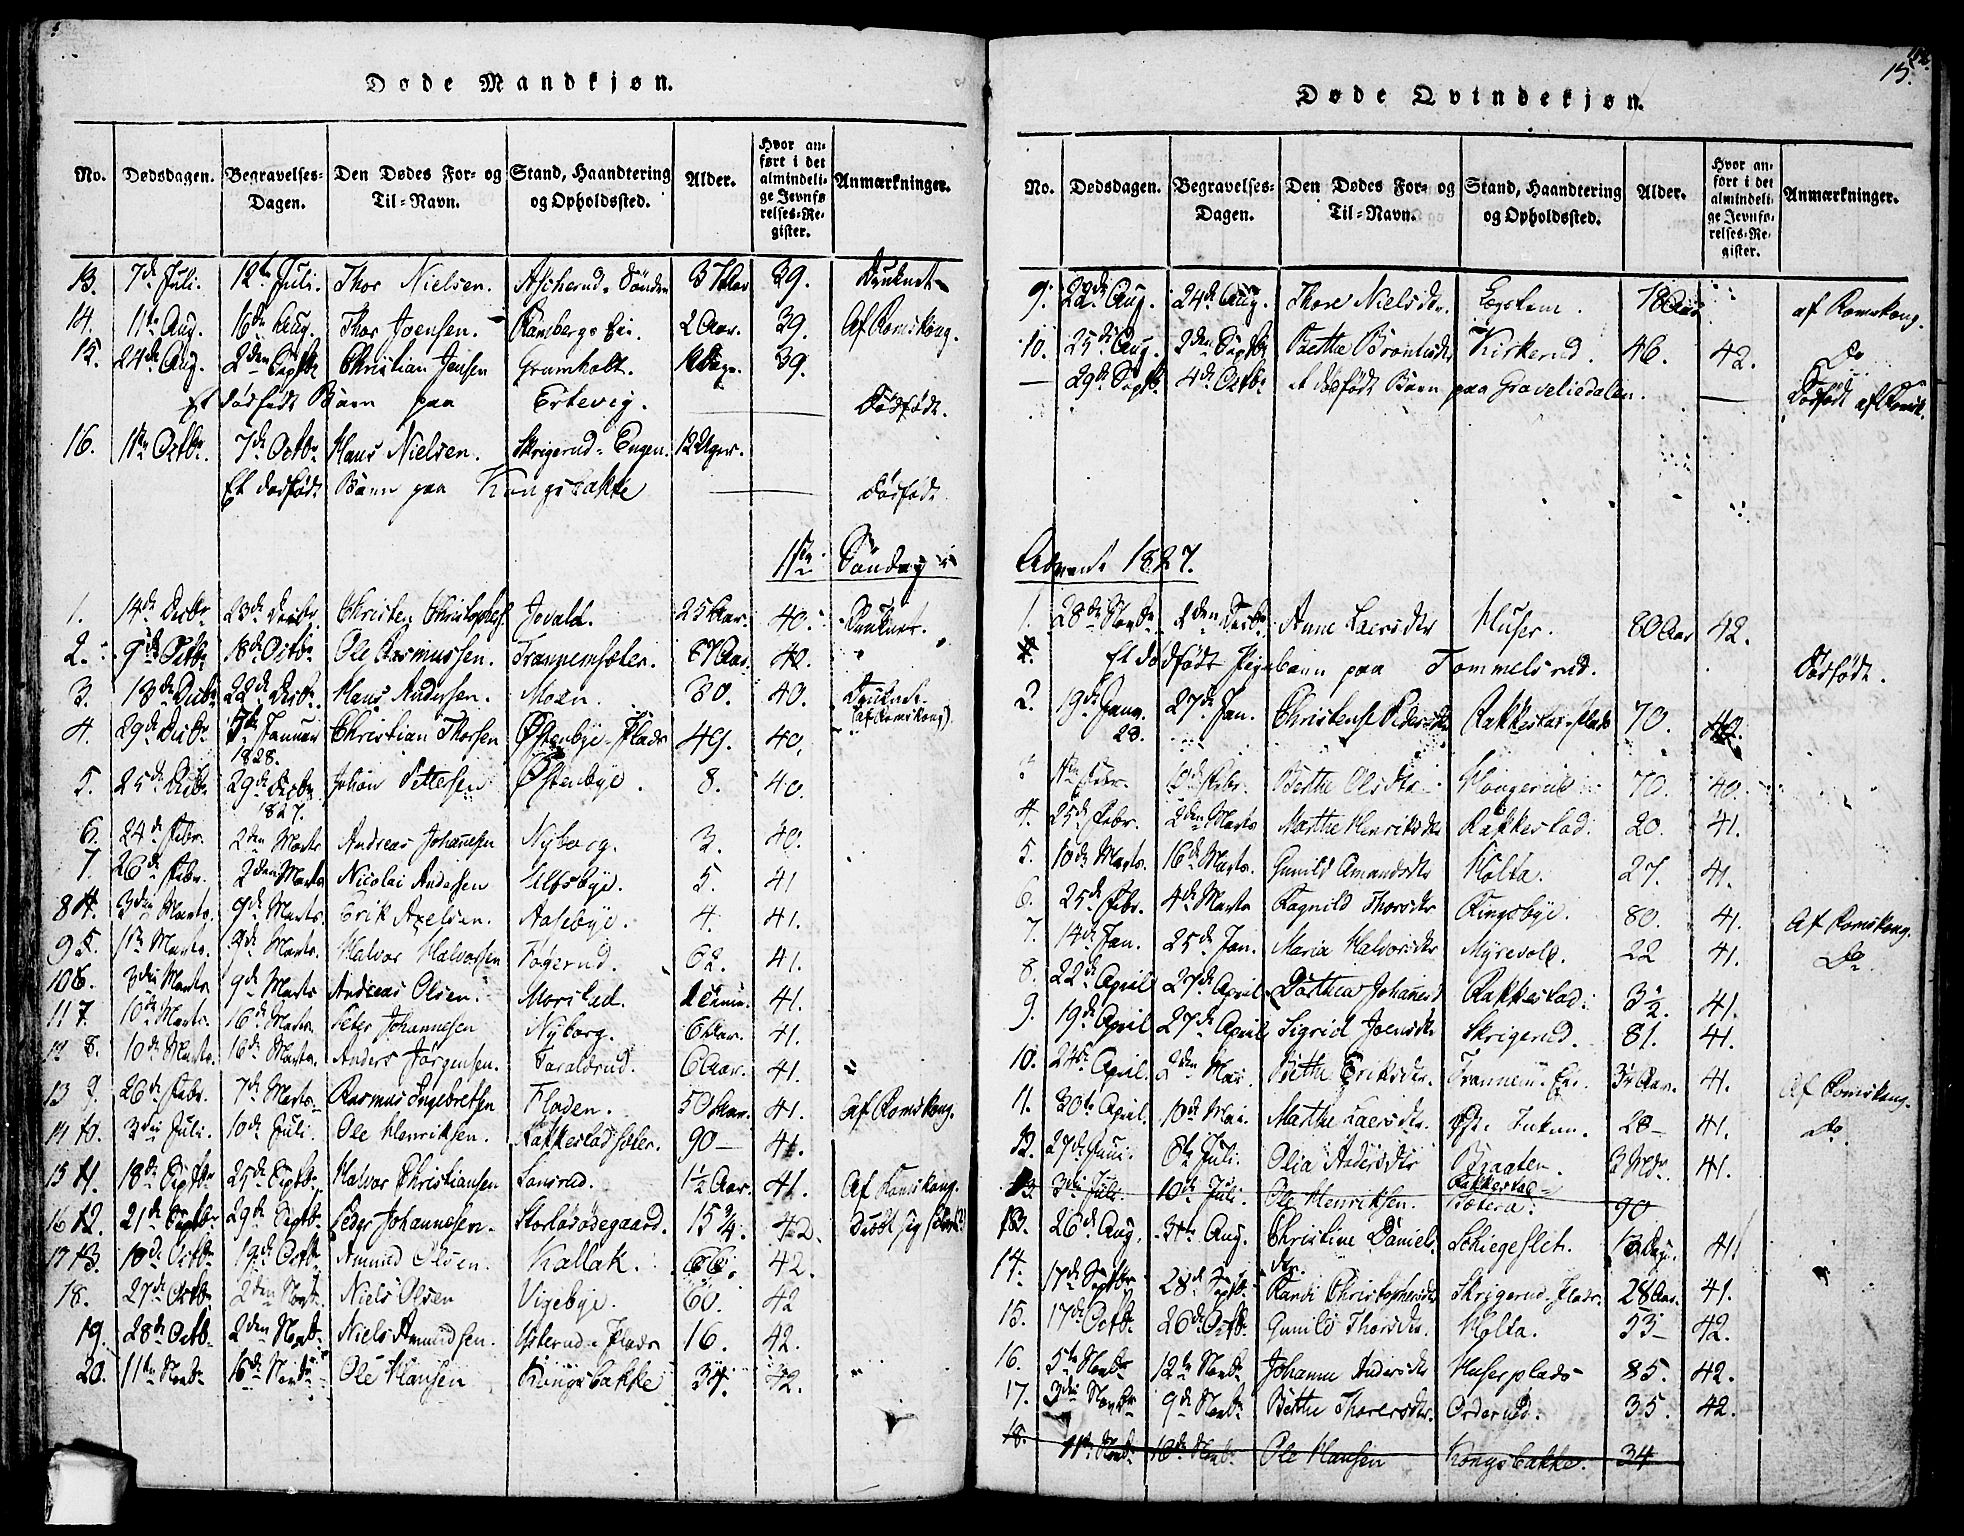 Døde Mandkjøn.
No. Dødsdagen. Begravelses-Dagen. Den Dødes For- og Til-Navn. Stand, Haandtering og Opholdssted. Alder. Hvor anført i det almindelige Jevnførelses-Register. Anmærkninger.
13. 7de Juli. 12te Juli. Thor Nielsen. Ascherud-Sönder 37 Aar 39. Druknet
14. 11te Aug. 16de Aug. Thor Joensen. Ramberg 2 Aar. 39. Af Romskong.
15. 24de Aug. 2den Septbr Christian Jensen Grumholt. Dage. 39.
Et dødfødt Barn paa Ertevig. — Dødfødt.
16. 1ste Octbr. 7de Octbr Hans Nielsen. Skrigerud-Engen. 12 Uger.
Et dødfødt Barn paa Kongsbakke — dødfødt
1ste Søndag i
1. 14de Decbr 23de Decbr. Christen Christophers. Jovald. 25 Aar. 40. Druknet.
2. 9de Octbr 18de Octbr Ole Rasmussen. Trannemsæter. 67 Aar. 40. "
3. 13de Decbr 22de Decbr. Hans Andersen. Moen. 80. 40. Druknet (af Romskong)
4. 29de Decbr Januar 1828. Christian Thorsen Østenbye-Plads 49. 40.
5. 25de Decbr 29de Decbr 1827. Johan Pettersen Østenbye. 8. 40.
6. 24de Febr. 2den Marts Andreas Johannesen Nyborg. 3. 40.
7. 26de Febr. 2den Marts Nicolai Andersen Ulfsbye. 5. 41
8 4. 3die Marts. 9de Marts. Erik Axelsen. Aasebye. 4. 41.
9 5. 1ste Marts. 9de Marts. Halvor Halvorsen Tøgerud. 62. 41.
10 6. 3die Marts 9de Marts Andreas Olsen. Morstad. 41.
11 7. 10de Marts. 16de Marts. Peter Johannesen Nyborg. 6 Aar. 41.
12 8. 10de Marts. 16de Marts. Anders Jörgensen. Taraldrud. 6 Aar. 41.
13 9. 26de Febr. 7de Marts. Rasmus Ingebretsen Floden. 50 Aar. 41. Af Romskong.
14 10. 3die Juli. 10de Juli. Ole Henriksen. Rakkestadsæter. 90 — 41.
15 11. 18de Septbr 25de Septbr. Halvor Christiansen Lonsrud. 1½ Aar. 41. Af Romskong.
16 12. 21de Septbr 29de Septbr. Peder Johannesen. Storløsødegaard. 15¾. 42.
17 13. 10de Octbr 19de Octbr Amund Olsen. Kallak. 66. 42.
18. 27de Octbr 2den Novbr. Niels Olsen Vigebye. 60. 42
19. 28de Octbr. 2den Novbr. Niels Amundsen. Plads 16. 42.
20. 11te Novbr 16de Novbr Ole Hansen Kongsbakke 34. 42.
15.
Døde Qvindekjøn.
No. Dødsdagen. Begravelses-Dagen. Den Dødes For- og Til-Navn. Stand, Haandtering og Opholdssted. Alder. Hvor anført i det almindelige Jevnførelses-Register. Anmærkninger.
9. 22de Aug. 24de Aug. Thore Nielsdtr. 78 Aar af Romskong.
10. 25de Aug. 2den Septbr Berthe Kirkerud. 46. 42. Do
— 29de Septbr. 4de Octbr et dødfødt Barn paa Graveliedalen. — Dødfødt af Romsk.
Advent 1827.
1. 28de Novbr. 2den Decbr. Anne Larsdtr Huser. 80 Aar 42.
Et dødfødt Pigebarn paa Tommelsrud. Dødfødt.
2. 19de Janv. 28. 27de Jan. Christense Pedersdtr Rakkestad-Plads 70. 40.
1ste Febr. Febr. Berthe Olsdtr Hougerud 70. 40.
4. 25de Febr. 2den Marts Marthe Henriksdtr Rakkestad. 20. 41.
5. 10de Marts. 16de Marts. Gunild Amundsdtr Holta. 27. 41.
6. 25de Febr. 4de Marts Ragnild Thorsdtr Kingsbye. 80. 41. Af Romskong.
7. 14de Jan. 25de Jan. Maria Halvorsdtr Myrevold. 22 41. Do.
8. 22de April 27de April Dorthea Johannesd Rakkestad. 3½. 41.
9. 19de April 27de April Sigrid Joensdtr Skrigerud. 81. 41.
10. 24de April. 2den Mai. Berthe Eriksdtr. Trannem-Eie. Aar. 41. Af Romskong.
11. 30te April. 10de Mai. Marthe Larsdtr. 28 — 41. Do.
12. 27de Juni. 8de Juli. Olia Andersdtr Braaten. 3 Mdr. 41.
13. 3die Juli. 10de Juli. Ole Henriksen. Rakkestad-Sæteren. 90
13. 26de Aug. 31te Aug. Christine Daniels dtr. Schiegeslet. Dage. 41.
14. 17de Septbr 28de Septbr. Randi Christophersdtr Skrigerud-Plads. 28 Aar. 41.
15. 17de Octbr. 26de Octbr. Gunild Thorsdtr. Holta. 53 — 42.
16. 5te Novbr 12te Novbr Johanne Andersdtr Huserplads 85. 42.
17. 3die Novbr 9de Novbr Berthe Thorersdtr. Orderud. 35. 42.
18. 11te Novbr. 16de Novbr. Ole Hansen Kongsbakke. 34